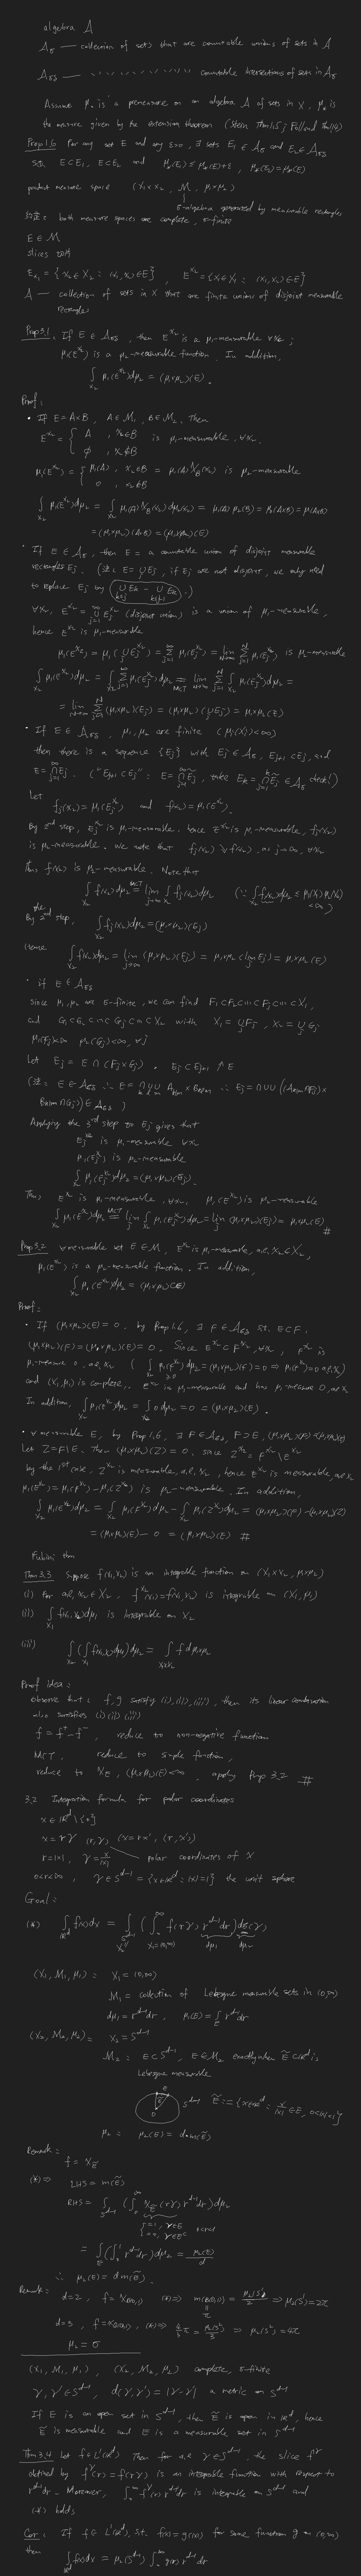 algebra A
A_σ — collection of sets that are countable unions of sets in A
A_σδ — 〃 countable intersections of sets in A_σ
Assume μ₀ is a premeasure on an algebra A of sets in X, μ* is
the measure given by the extension theorem (Stein Thm 1.5; Folland Thm 1.14)
Prop 1.6 For any set E and any ε>0, ∃ sets E₁ ∈ A_σ and E₂ ∈ A_σδ
s.t. E⊂E₁, E⊂E₂ and μ*(E₁) ≤ μ*(E)+ε, μ*(E₂)=μ*(E)
product measure space (X₁×X₂, M, μ₁×μ₂)
σ-algebra generated by measurable rectangles
约定: both measure spaces are complete, σ-finite
E ∈ M
slices 切片
E_{x₁} = {x₂∈X₂ : (x₁,x₂)∈E}, E^{x₂} = {x₁∈X₁ : (x₁,x₂)∈E}
A — collection of sets in X that are finite unions of disjoint measurable
rectangles
Prop 3.1: If E ∈ A_σδ, then E^{x₂} is a μ₁-measurable ∀x₂;
μ₁(E^{x₂}) is a μ₂-measurable function. In addition,
∫_{X₂} μ₁(E^{x₂})dμ₂ = (μ₁×μ₂)(E).
Proof:
• If E = A×B, A∈M₁, B∈M₂. Then
E^{x₂} = { A, x₂∈B ; ∅, x₂∉B is μ₁-measurable, ∀x₂.
μ₁(E^{x₂}) = { μ₁(A), x₂∈B ; 0, x₂∉B = μ₁(A)χ_B(x₂) is μ₂-measurable
∫_{X₂} μ₁(E^{x₂})dμ₂ = ∫_{X₂} μ₁(A)χ_B(x₂)dμ₂(x₂) = μ₁(A)μ₂(B) = μ₀(A×B) = μ(A×B)
= (μ₁×μ₂)(A×B) = (μ₁×μ₂)(E)
• If E ∈ A_σ, then E = a countable union of disjoint measurable
rectangles E_j. (注: E = ∪E_j, if E_j are not disjoint, we only need
to replace E_j by ∪_{k≤j} E_k − ∪_{k≤j-1} E_k.)
∀x₂, E^{x₂} = ∪_{j=1}^∞ E_j^{x₂} (disjoint union) is a union of μ₁-measurable,
hence E^{x₂} is μ₁-measurable
μ₁(E^{x₂}) = μ₁(∪E_j^{x₂}) = Σ_{j=1}^∞ μ₁(E_j^{x₂}) = lim_{N→∞} Σ_{j=1}^N μ₁(E_j^{x₂}) is μ₂-measurable
∫_{X₂} μ₁(E^{x₂})dμ₂ = ∫_{X₂} Σ_{j=1}^∞ μ₁(E_j^{x₂})dμ₂ =_{MCT} lim_{N→∞} Σ_{j=1}^N ∫_{X₂} μ₁(E_j^{x₂})dμ₂ =
= lim_{N→∞} Σ_{j=1}^N (μ₁×μ₂)(E_j) = (μ₁×μ₂)(∪E_j) = μ₁×μ₂(E)
• If E ∈ A_σδ, μ₁, μ₂ are finite (μ_i(X_i)<∞)
then there is a sequence {E_j} with E_j∈A_σ, E_{j+1}⊂E_j, and
E = ∩_{j=1}^∞ E_j. ("E_{j+1}⊂E_j": E = ∩_{j=1}^∞ Ẽ_j, take E_k = ∩_{j=1}^k Ẽ_j ∈ A_σ check!)
Let
f_j(x₂) = μ₁(E_j^{x₂}) and f(x₂) = μ₁(E^{x₂}).
By 2nd step, E_j^{x₂} is μ₁-measurable. hence E^{x₂} is μ₁-measurable, f_j(x₂)
is μ₂-measurable. We note that f_j(x₂) ↘ f(x₂), as j→∞, ∀x₂
Thus f(x₂) is μ₂-measurable. Note that
∫_{X₂} f(x₂)dμ₂ =^{MCT} lim_{j→∞} ∫_{X₂} f_j(x₂)dμ₂ (∵ ∫_{X₂} f_j(x₂)dμ₂ ≤ μ₁(X₁)μ₂(X₂) <∞)
By the 2nd step, ∫_{X₂} f_j(x₂)dμ₂ = (μ₁×μ₂)(E_j)
Hence
∫_{X₂} f(x₂)dμ₂ = lim_{j→∞} (μ₁×μ₂)(E_j) = μ₁×μ₂(lim E_j) = μ₁×μ₂(E)
• if E ∈ A_σδ
Since μ₁, μ₂ are σ-finite, we can find F₁⊂F₂⊂⋯⊂F_j⊂⋯⊂X₁,
and G₁⊂G₂⊂⋯⊂G_j⊂⋯⊂X₂ with X₁ = ∪F_j, X₂ = ∪G_j
μ₁(F_j)<∞ μ₂(G_j)<∞, ∀j
Let E_j = E∩(F_j×G_j). E_j⊂E_{j+1} ↑E
Applying the 3rd step to E_j gives that
E_j^{x₂} is μ₁-measurable ∀x₂
μ₁(E_j^{x₂}) is μ₂-measurable
∫_{X₂} μ₁(E_j^{x₂})dμ₂ = (μ₁×μ₂)(E_j).
Thus E^{x₂} is μ₁-measurable, ∀x₂, μ₁(E^{x₂}) is μ₂-measurable
∫_{X₂} μ₁(E^{x₂})dμ₂ =^{MCT} lim_j ∫_{X₂} μ₁(E_j^{x₂})dμ₂ = lim_j (μ₁×μ₂)(E_j) = μ₁×μ₂(E) #
Prop 3.2 ∀measurable set E∈M, E^{x₂} is μ₁-measurable, a.e. x₂∈X₂,
μ₁(E^{x₂}) is a μ₂-measurable function. In addition,
∫_{X₂} μ₁(E^{x₂})dμ₂ = (μ₁×μ₂)(E)
Proof:
• If (μ₁×μ₂)(E)=0, by Prop 1.6, ∃F∈A_σδ s.t. E⊂F.
(μ₁×μ₂)(F) = (μ₁×μ₂)(E) = 0. Since E^{x₂}⊂F^{x₂}, ∀x₂, F^{x₂} is
μ₁-measure 0, a.e. x₂ (∫_{X₂} μ₁(F^{x₂})dμ₂ = (μ₁×μ₂)(F) = 0 ⇒ μ₁(F^{x₂})=0 a.e. x₂)
and (X₁,μ₁) is complete. E^{x₂} is μ₁-measurable and has μ₁-measure 0, a.e. x₂
In addition, ∫_{X₂} μ₁(E^{x₂})dμ₂ = ∫_{X₂} 0 dμ₂ = 0 = (μ₁×μ₂)(E).
• ∀ measurable E, by Prop 1.6, ∃F∈A_σδ, F⊃E, (μ₁×μ₂)(F)=(μ₁×μ₂)(E)
Let Z = F\E. Then (μ₁×μ₂)(Z)=0. since Z^{x₂} = F^{x₂}\E^{x₂}
by the 1st case, Z^{x₂} is measurable, a.e. x₂, hence E^{x₂} is measurable, a.e. x₂
μ₁(E^{x₂}) = μ₁(F^{x₂}) − μ₁(Z^{x₂}) is μ₂-measurable. In addition,
∫_{X₂} μ₁(E^{x₂})dμ₂ = ∫_{X₂} μ₁(F^{x₂})dμ₂ − ∫_{X₂} μ₁(Z^{x₂})dμ₂ = (μ₁×μ₂)(F) − (μ₁×μ₂)(Z)
= (μ₁×μ₂)(E) − 0 = (μ₁×μ₂)(E) #
Fubini thm
Thm 3.3 Suppose f(x₁,x₂) is an integrable function on (X₁×X₂, μ₁×μ₂)
(i) For a.e. x₂∈X₂, f^{x₂}(x₁)=f(x₁,x₂) is integrable on (X₁,μ₁)
(ii) ∫_{X₁} f(x₁,x₂)dμ₁ is integrable on X₂
(iii) ∫_{X₂} (∫_{X₁} f(x₁,x₂)dμ₁)dμ₂ = ∫_{X₁×X₂} f dμ₁×μ₂
Proof idea:
Observe that: f,g satisfy (i),(ii),(iii), then its linear combination
also satisfies (i)(ii)(iii)
f = f⁺−f⁻, reduce to non-negative function
MCT, reduce to simple function,
reduce to χ_E, (μ₁×μ₂)(E)<∞. apply Prop 3.2 #
3.2 Integration formula for polar coordinates
x∈ℝ^d \ {0}
x = rγ (r,γ) (x = rx', (r,x'))
r = |x|, γ = x/|x| polar coordinates of x
0<r<∞, γ∈S^{d-1} = {x∈ℝ^d : |x|=1} the unit sphere
Goal:
(*) ∫_{ℝ^d} f(x)dx = ∫_{S^{d-1}} (∫_0^∞ f(rγ) r^{d-1}dr) dσ(γ)
X₂ X₁=(0,∞) dμ₁ dμ₂
(X₁,M₁,μ₁): X₁ = (0,∞)
M₁ = collection of Lebesgue measurable sets in (0,∞)
dμ₁ = r^{d-1}dr, μ₁(E) = ∫_E r^{d-1}dr
(X₂,M₂,μ₂): X₂ = S^{d-1}
M₂: E⊂S^{d-1}, E∈M₂ exactly when Ẽ⊂ℝ^d is
Lebesgue measurable
E S^{d-1} Ẽ := {x∈ℝ^d : x/|x| ∈E, 0<|x|<1}
0
μ₂: μ₂(E) = d·m(Ẽ)
Remark:
f = χ_Ẽ
(*) ⇒ LHS = m(Ẽ)
RHS = ∫_{S^{d-1}} (∫_0^∞ χ_Ẽ(rγ) r^{d-1}dr)dμ₂
{=1, γ∈E ; =0, γ∈E^c 0<r<1
= ∫_E (∫_0^1 r^{d-1}dr)dμ₂ = μ₂(E)/d
∴ μ₂(E) = d m(Ẽ).
Remark:
d=2, f=χ_{B(0,1)} (*) ⇒ m(B(0,1)) = μ₂(S¹)/2 ⇒ μ₂(S¹) = 2π
π
d=3, f=χ_{B(0,1)}, (*) ⇒ 4/3 π = μ₂(S²)/3 ⇒ μ₂(S²) = 4π
μ₂ = σ
(X₁,M₁,μ₁), (X₂,M₂,μ₂) complete, σ-finite
γ,γ'∈S^{d-1}, d(γ,γ') = |γ−γ'| a metric on S^{d-1}
If E is an open set in S^{d-1}, then Ẽ is open in ℝ^d, hence
Ẽ is measurable and E is a measurable set in S^{d-1}
Thm 3.4 Let f∈L¹(ℝ^d) Then for a.e. γ∈S^{d-1}, the slice f^γ
defined by f^γ(r) = f(rγ) is an integrable function with respect to
r^{d-1}dr. Moreover, ∫_0^∞ f^γ(r) r^{d-1}dr is integrable on S^{d-1} and
(*) holds
Cor: If f∈L¹(ℝ^d), s.t. f(x)=g(|x|) for some function g on (0,∞)
then ∫_{ℝ^d} f(x)dx = μ₂(S^{d-1}) ∫_0^∞ g(r) r^{d-1}dr